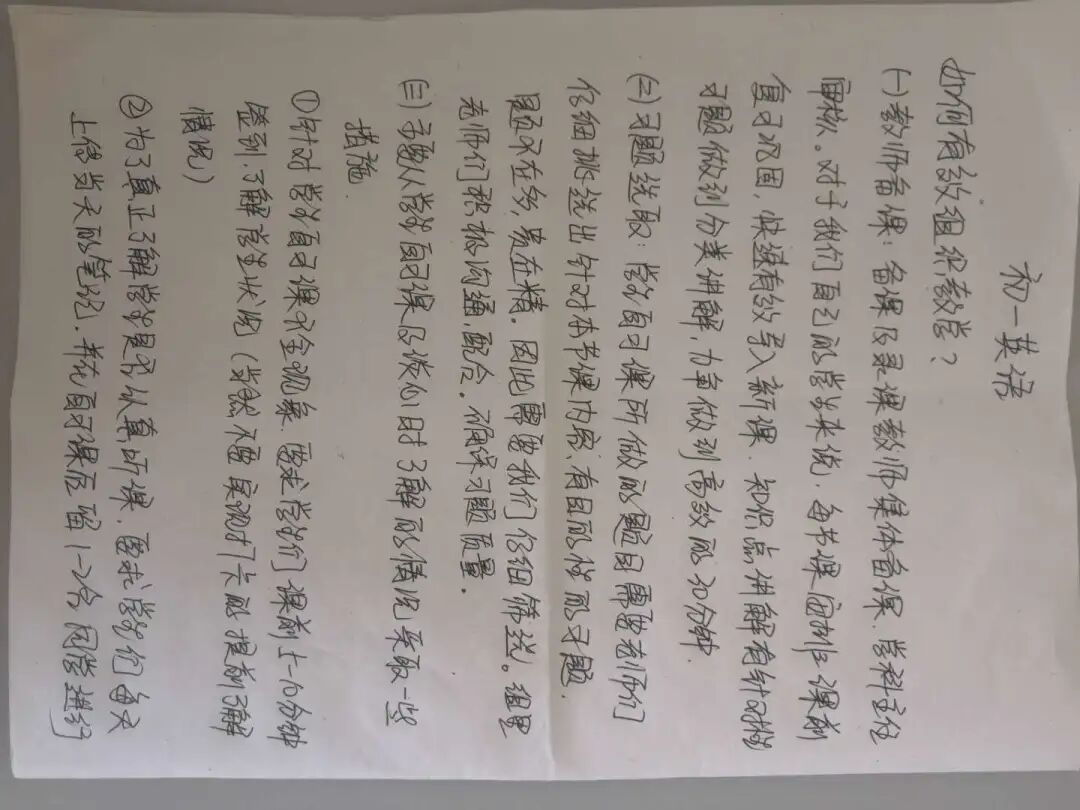 初一英语
如何有效组织教学？
(一)教师备课：备课及录课教师集体备课、学科主任
审核。对于我们自己的学生来说，每节课因制作课前
复习巩固，快速有效导入新课，知识点讲解有针对性
习题做到分类讲解，力争做到高效的20分钟.
(二)习题选取：学生自习课所做的题目需要老师们
仔细挑选出针对本节课内容、有目的性的习题.
题不在多，贵在精。因此需要我们仔细筛选。组里
老师们积极沟通，配合。确保习题质量.
(三)主要从学生自习课及微信时了解的情况采取一些
措施.
①针对学生自习课不全现象 要求学生们课前5-10分钟
签到.了解学生状况(当然不要实现打卡的提前了解
情况)
②为了真正了解学生是不认真听课，要求学生们每天
上传当天的笔记.并在自习课后留1-2分同学进行